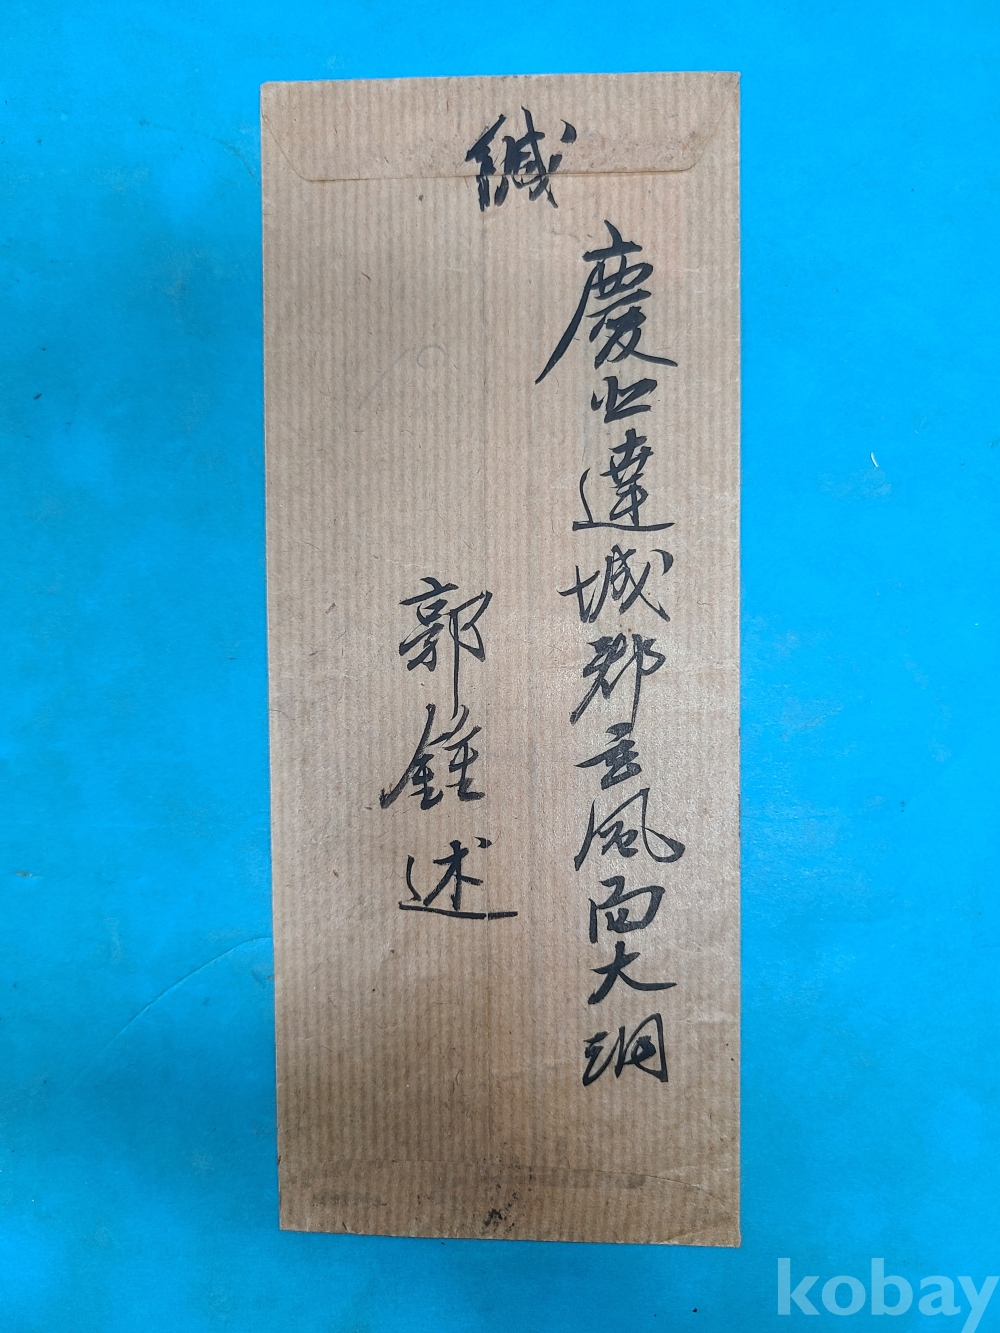 緘
慶北達城郡玄風面大洞
郭鍾述
kobay